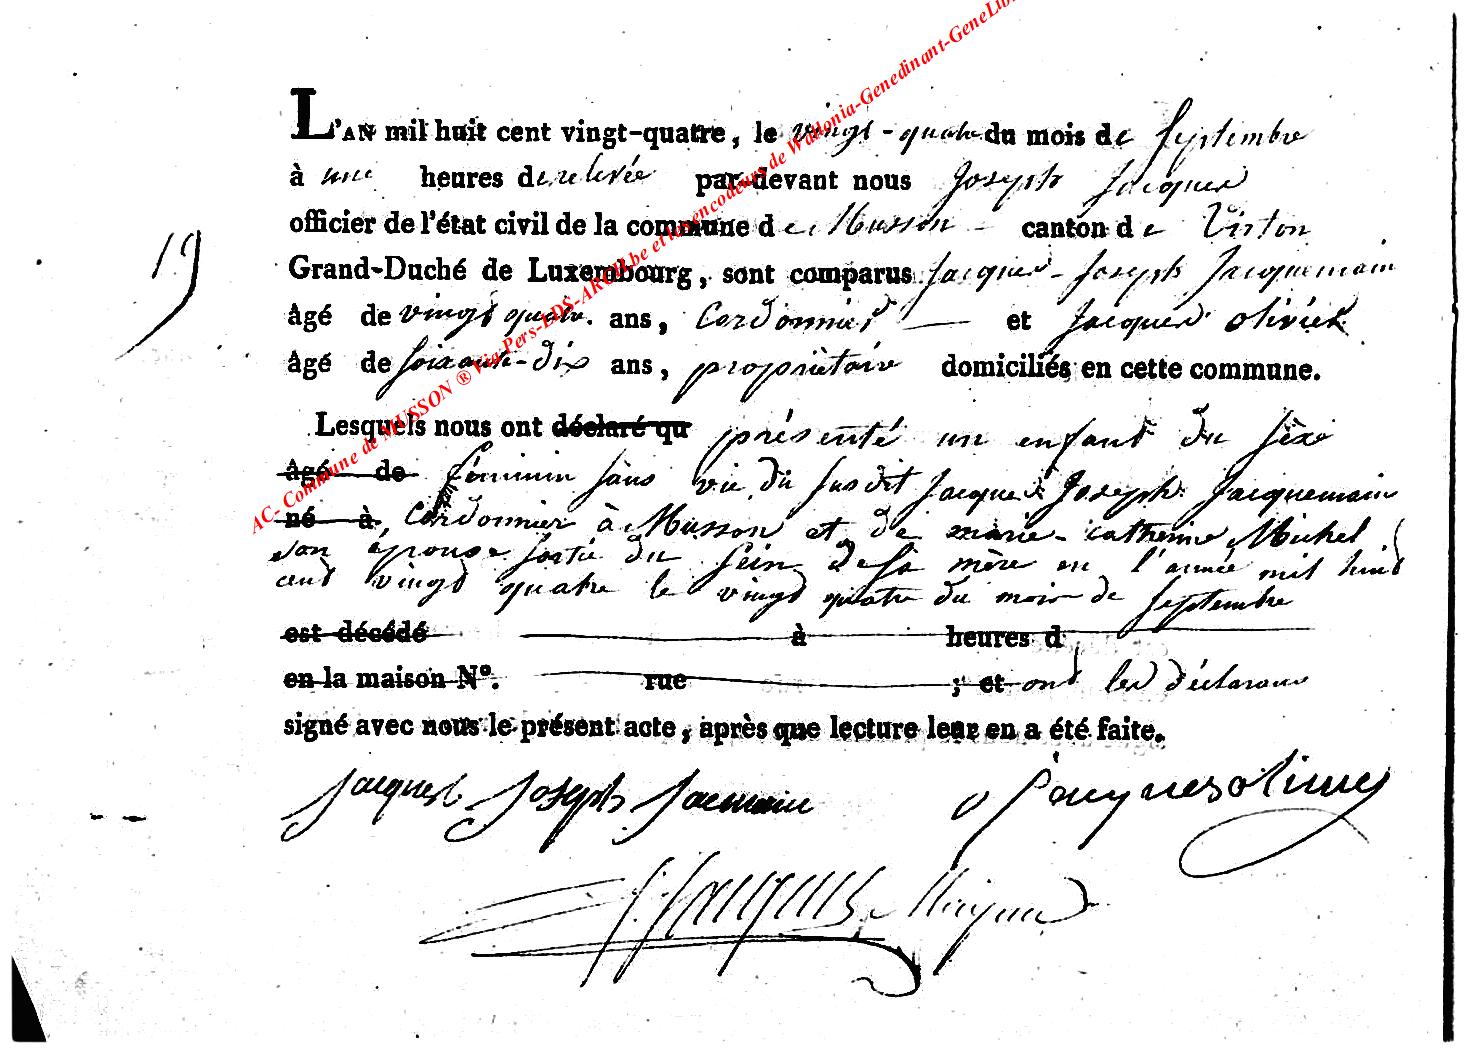 L'AN mil huit cent vingt-quatre, le vingt-quatre du mois de Septembre
à une heures de relevée par-devant nous Joseph Jacques
officier de l'état civil de la commune de Musson canton de Virton
19
Grand-Duché de Luxembourg, sont comparus Jacques-Joseph Jacquemain
âgé de vingt quatre ans, Cordonnier et Jacques olivier
âgé de soixante-dix ans, propriétaire domiciliés en cette commune.
Lesquels nous ont déclaré qu présenté un enfant du sèxe
âgé de féminin sans vie du susdit Jacques Joseph Jacquemain
né à Cordonnier à Musson et de marie-catherine Michel
son épouse sortie du sein de sa mère en l'année mil huit
cent vingt quatre le vingt quatre du mois de septembre
est décédé à heures d
en la maison N°. rue ; et ont les déclarans
signé avec nous le présent acte, après que lecture leur en a été faite.
Jacques Joseph Jacmain Jacques olivier
J. Jacques
AC- Commune de MUSSON ® Via Pers-EDS-ARCH.be et les encodeurs de Wallonia-Genedinant-GeneLib